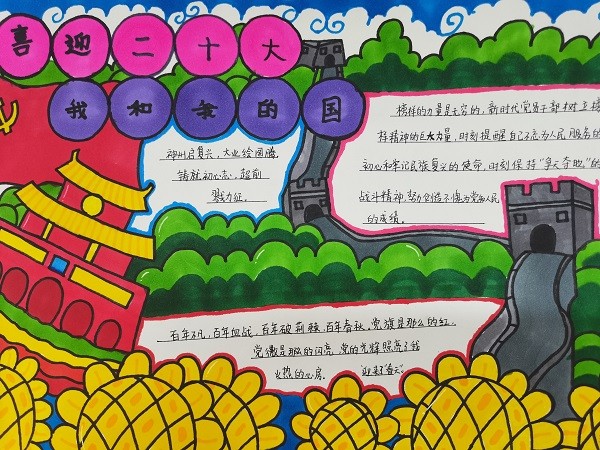 喜迎二十大
我和爷的国
神州启复兴，大业绘图腾
铸就初心志，超前
毅力征。
榜样的力量是无穷的，新时代党员干部对卫
样精神的巨大力量，时刻提醒自己不忘为人民服务的
初心和牢记民族复兴的使命，时刻保持
战斗精神，努力创造不愧为党和人民
的成绩。
百年不凡，百年血战，百年破荆棘，百年春秋，党旗是那么的红，
党徽是那么的闪亮，党的光辉照亮了我
火热的心房。